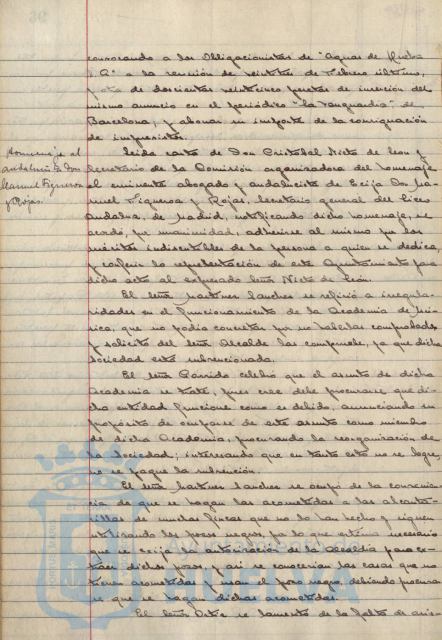 convocando a los Obligacionistas de "Aguas de Huel-
S.A." a la reunión de veintitres de Febrero último,
y otra de doscientas veinticinco pesetas de inserción del
mismo anuncio en el periódico "La Vanguardia" de
Barcelona, y abonar su importe de la consignación
de imprevistos.
Homenaje al
andalucista Don
Manuel Figueroa
y Rojas.
Leida carta de Don Cristobal Nieto de León y
Secretario de la Comisión organizadora del homenaje
al eminente abogado y andalucista de Ecija Don Ma-
nuel Figueroa y Rojas, Secretario general del Liceo
Andaluz, de Madrid, notificando dicho homenaje, se
acordó, por unanimidad, adherirse al mismo por los
méritos indiscutibles de la persona a quien se dedica,
y conferir la representación de este Ayuntamiento para
dicho acto al expresado Señor Nieto de León.
El Señor Martinez Sanchez se refirió a irregula-
ridades en el funcionamiento de la Academia de Mú-
sica, que no podía concretar por no haberlas comprobado,
y solicitó del Señor Alcalde las compruebe, ya que dicha
Sociedad está subvencionada.
El Señor Garrido celebró que el asunto de dicha
Academia se trate, pues cree debe procurarse que di-
cha entidad funcione como es debido, anunciando su
propósito de ocuparse de este asunto como miembro
de dicha Academia, procurando la reorganización de
la Sociedad; interesando que en tanto esto no se logre,
no se pague la subvención.
El Señor Martinez Sanchez se ocupó de la convenien-
cia de que se hagan las acometidas a las alcanta-
rillas de muchas fincas que no lo han hecho y siguen
utilizando los pozos negros, por lo que estima necesario
que se exija la autorización de la Alcaldía para ex-
traer dichos pozos, y así se conocerían las casas que no
tienen acometidas y usan el pozo negro, debiendo procurar-
se que se hagan dichas acometidas.
El Señor Ortiz se lamentó de la falta de asis-